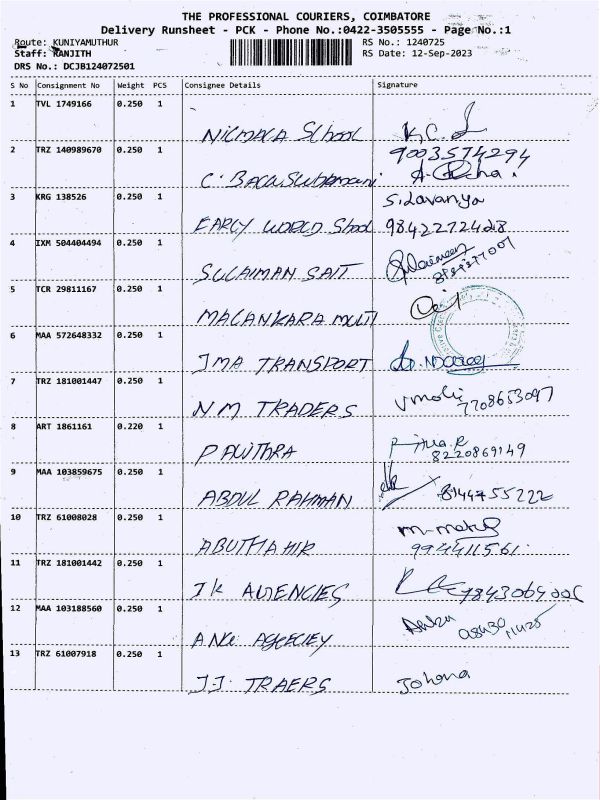 THE PROFESSIONAL COURIERS, COIMBATORE
Delivery Runsheet - PCK - Phone No.:0422-3505555 - Page No.:1
Route: KUNIYAMUTHUR RS No.: 1240725
Staff: RANJITH RS Date: 12-Sep-2023
DRS No.: DCJB124072501
S No Consignment No Weight PCS Consignee Details Signature
1 TVL 1749166 0.250 1
NILMALA School K.C.
2 TRZ 140989670 0.250 1 9003574294
C. BALASUBRAMANI
3 KRG 138526 0.250 1 S. Lavanya
EARLY WORLD School 9842272428
4 IXM 504404494 0.250 1
SULAIMAN SAIT
5 TCR 29811167 0.250 1
MALANKARA MULTI
6 MAA 572648332 0.250 1
JMA TRANSPORT
7 TRZ 181001447 0.250 1
NM TRADERS 7708653097
8 ART 1861161 0.220 1
PAVITHRA 8220869149
9 MAA 103859675 0.250 1
ABDUL RAHMAN 8144755222
10 TRZ 61008028 0.250 1
ABUTHAHIR 9944411561
11 TRZ 181001442 0.250 1
JK AGENCIES
12 MAA 103188560 0.250 1
13 TRZ 61007918 0.250 1
JJ. TRAERS Johana